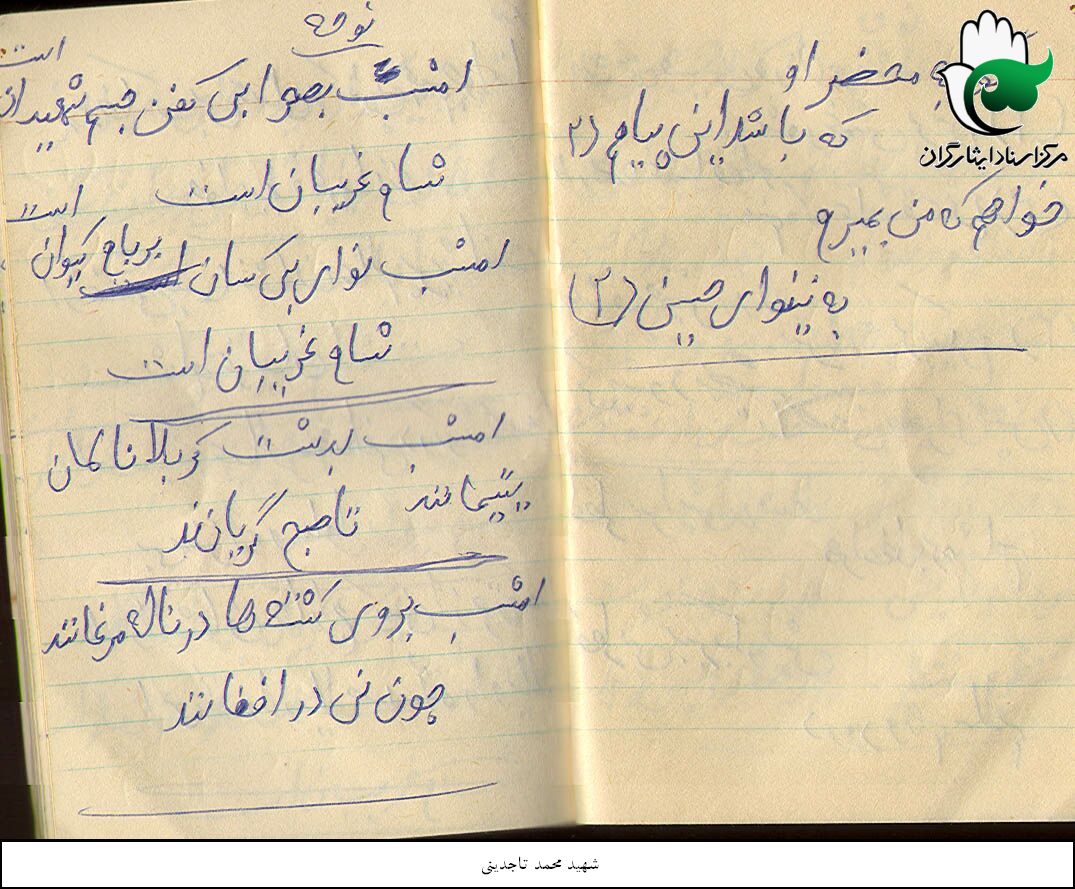 به محضر او
که باشد این پیام (۲
خواهم که من بمیرم
به نینوای حسین (۲)
نوحه
امشب بصحرا بی کفن جسم شهیدان است
شام غریبان است
امشب نوای بی کسان بر بام کیوان است
شام غریبان است
امشب بدشت کربلا نالان
یتیمانند تا صبح گریانند
امشب بروی کشته ها در ناله مرغانند
چون نی در افغانند
مرکز اسناد ایثارگران
شهید محمد تاجدینی